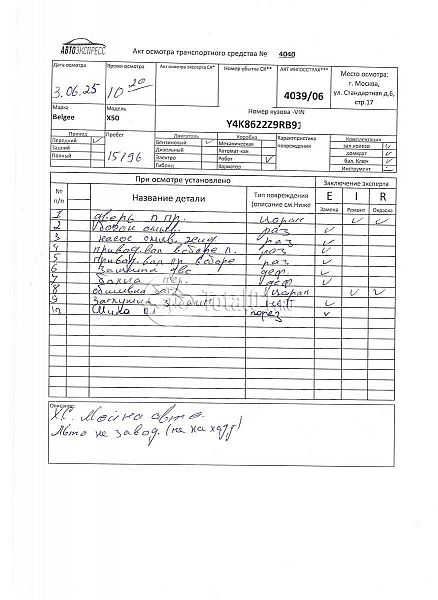 АВТОЭКСПРЕСС
Акт осмотра транспортного средства № 4040
Дата осмотра Время осмотра Акт осмотра эксперта СК* Номер убытка СК** АКТ ИНГОССТРАХ*** Место осмотра:
г. Москва,
ул. Стандартная д.6,
стр.17
3.06.25 10 20 4039/06
Марка Модель Номер кузова -VIN
Belgee X50 Y4K8622Z9RB91
Привод Пробег Двигатель Коробка Характеристика повреждения Комплектация
Передний ✓ 15196 Бензиновый ✓ Механическая зап.колесо ✓
Задний Дизельный Автомат-кая домкрат ✓
Полный Электро Робот ✓ бал. Ключ ✓
Гибрид Вариатор Инструмент
№ п/п При осмотре установлено Заключение эксперта
Название детали Тип повреждения (описание см.Ниже E I R
Замена Ремонт Окраска
1 дверь п.пр. царап ✓ ✓
2 раз ✓
3 насос раз ✓
4 привод.вал в сборе л. раз ✓
5 привод.вал пр. в сборе раз ✓
6 двс деф. ✓
7 пер. деф ✓
8 обшивка царап ✓ ✓
9 заглушка ✓
10 Шина п.л порез ✓
Total
Описание:
ХС. Мойка авто.
Авто не завод. (не на ходу)